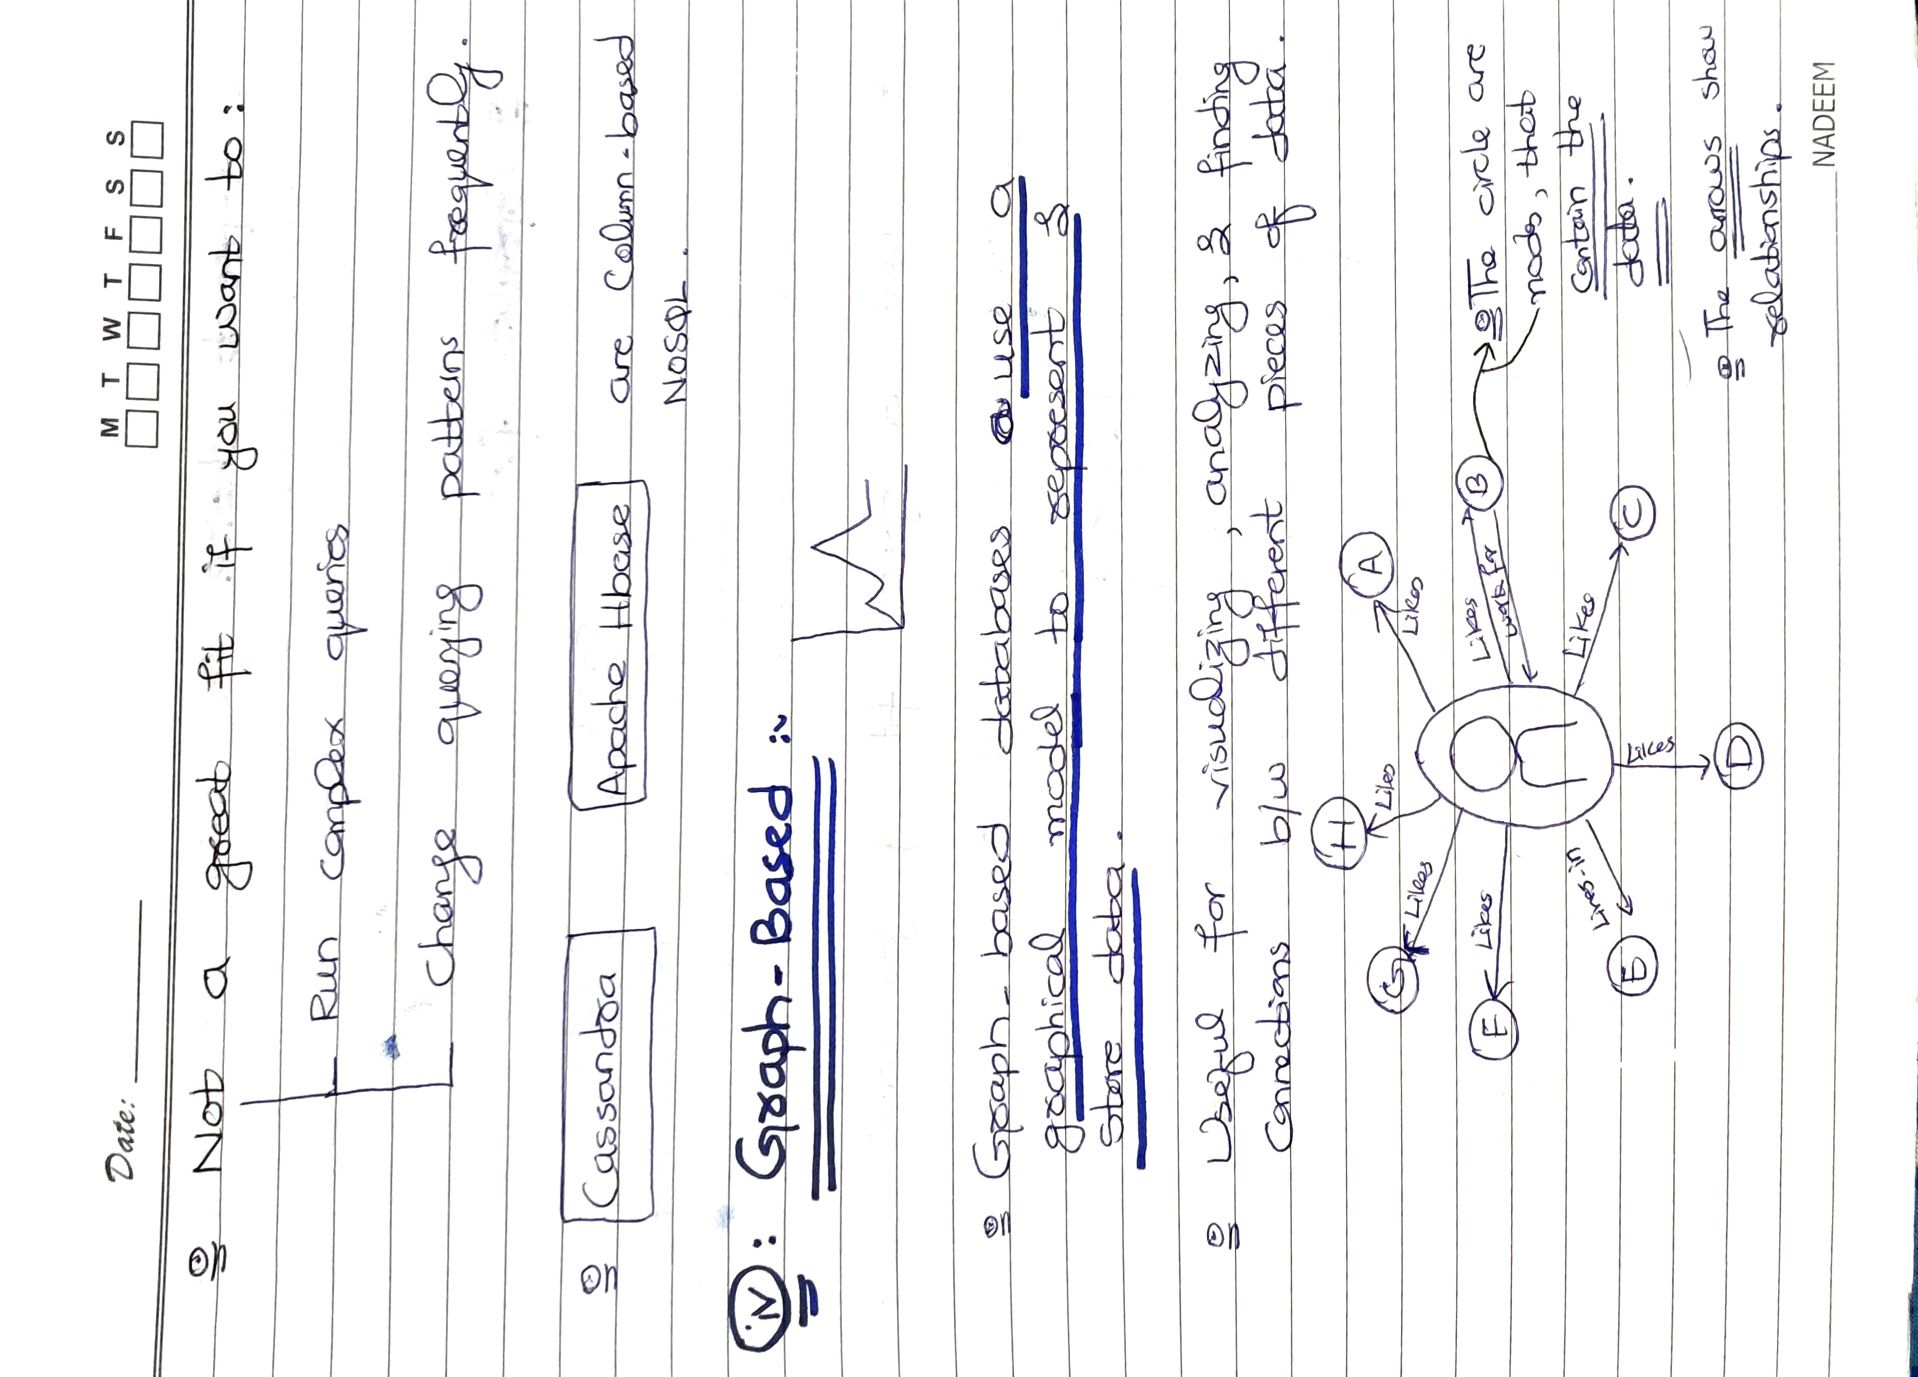 Date:
M T W T F S S
Not a great fit if you want to:
Run complex queries
Change querying patterns frequently.
Cassandra Apache Hbase are Column-based
NoSQL.
iv: Graph-Based :~
Graph-based databases use a
graphical model to represent &
Store data.
Useful for visualizing, analyzing, & finding
Connections b/w different pieces of data.
H
Likes
A
Likes
G
Likes
B
Likes
works for
The circle are
nods, that
Contain the
data.
F
Likes
C
Likes
E
Lives-in
D
Likes
The arrows show
relationships.
NADEEM